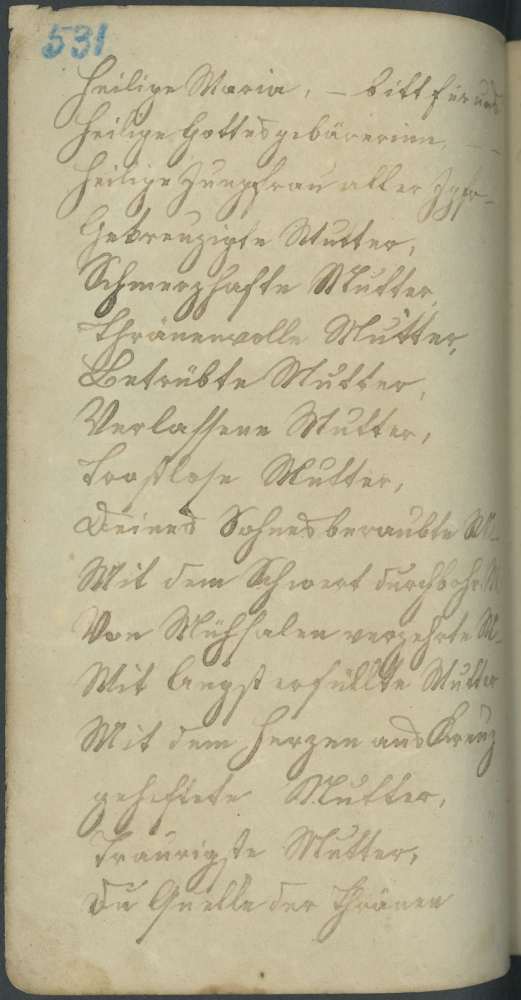 531
Heilige Maria, – bitt für uns
Heilige Gottesgebärerinn, – –
Heilige Jungfrau aller Jgfr–
Gekreuzigte Mutter,
Schmerzhafte Mutter,
Thränenvolle Mutter,
Betrübte Mutter,
Verlassene Mutter,
Trostlose Mutter,
Deines Sohnes beraubte M–
Mit dem Schwert durchbohr. M
Von Mühsalen verzehrte M–
Mit Angst erfüllte Mutter
Mit dem Herzen ans Kreuz
geheftete Mutter,
Traurigste Mutter,
Du Quelle der Thränen